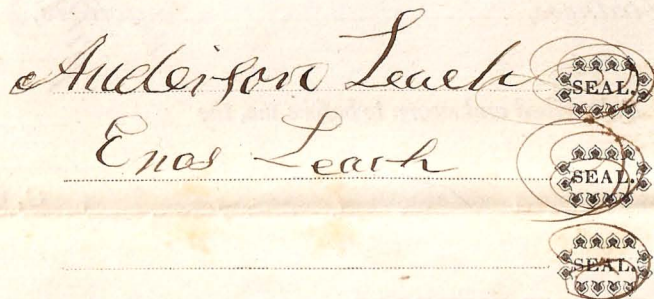 Anderson Leach SEAL.
Enos Leach SEAL.
SEAL.